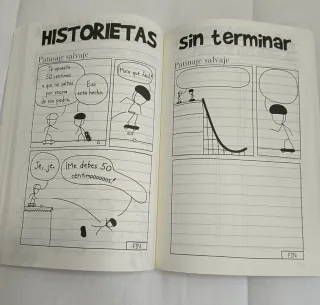 HISTORIETAS
Patinaje salvaje
Te apuesto
50 céntimos
a que no saltas
por encima
de ese padre.
Eso
está hecho.
¡Mira qué fácil!
Je, je.
¡Me debes 50
céntimoooooos!
FIN
Sin terminar
Patinaje salvaje
FIN